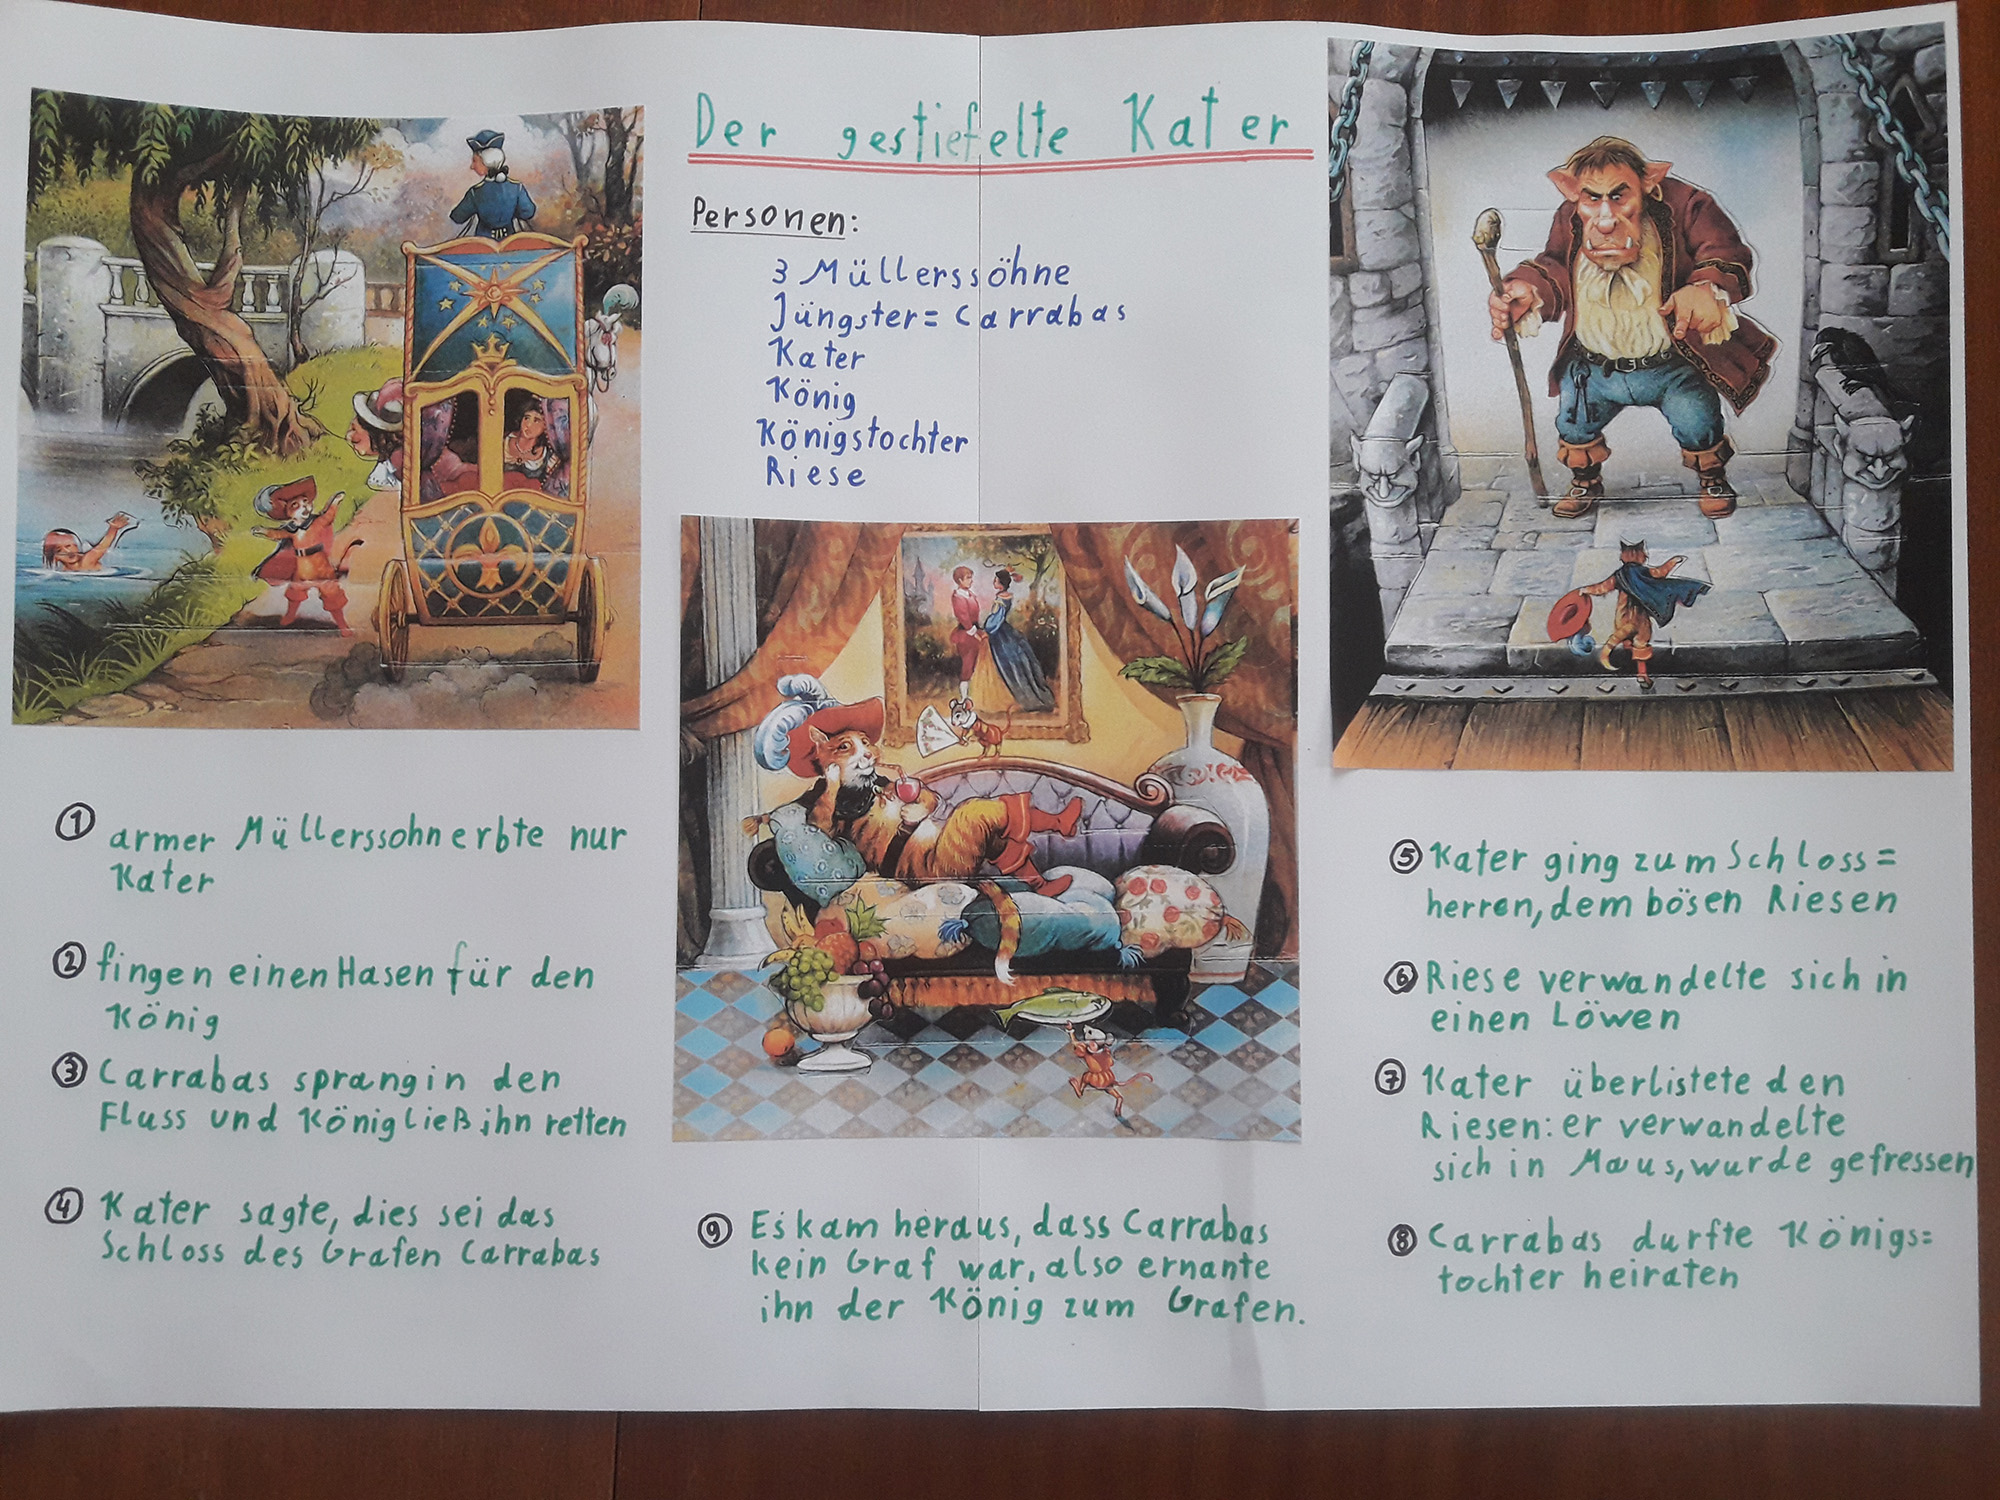 Der gestiefelte Kater
Personen:
3 Müllerssöhne
Jüngster = Carrabas
Kater
König
Königstochter
Riese
① armer Müllerssohn erbte nur
Kater
② fingen einen Hasen für den
König
③ Carrabas sprang in den
Fluss und König ließ ihn retten
④ Kater sagte, dies sei das
Schloss des Grafen Carrabas
⑤ Kater ging zum Schloss=
herren, dem bösen Riesen
⑥ Riese verwandelte sich in
einen Löwen
⑦ Kater überlistete den
Riesen: er verwandelte
sich in Maus, wurde gefressen
⑧ Carrabas durfte Königs=
tochter heiraten
⑨ Es kam heraus, dass Carrabas
kein Graf war, also ernante
ihn der König zum Grafen.